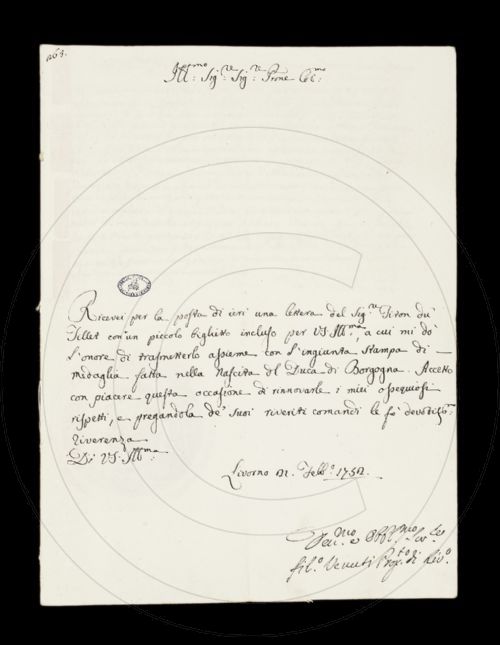 Ill:mo Sig:re Sig:re Prone Col:mo
Ricevei per la posta di ieri una lettera del Sig:re Titon du
Tillet con un piccolo biglietto incluso per VS: Ill:ma, a cui mi dò
l'onore di trasmetterlo assieme con l'ingiunta stampa di
medaglia fatta nella Nascita del Duca di Borgogna. Accetto
con piacere questa occasione di rinnovarle i miei ossequiosi
rispetti, e pregandola de' suoi riveriti comandi le fò devotiss:ma
Riverenza
Di VS: Ill:ma
Livorno Febb:o
Fil:o Venuti Prop:to di Liv:o